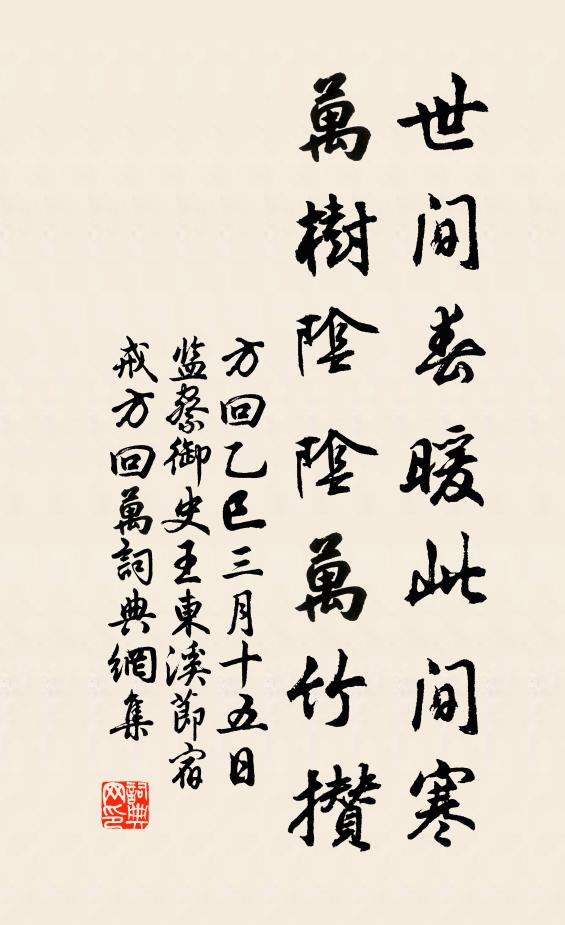 世間春暖此間寒
萬樹陰陰萬竹攢
方回乙巳三月十五日
监察御史王東溪節宿
戒方回萬詞典網集
詞典网印